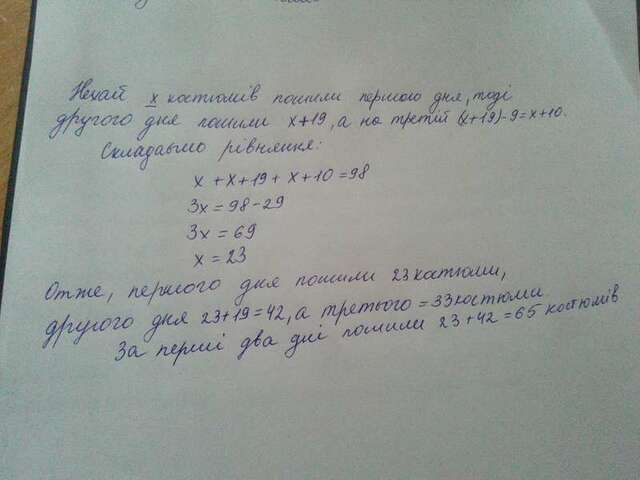 Нехай х костюмів пошили першого дня, тоді
другого дня пошили х+19, а на третій (х+19)-9=х+10.
Складаємо рівняння:
х + х+19 + х+10 = 98
3х = 98-29
3х = 69
х = 23
Отже, першого дня пошили 23 костюми,
другого дня 23+19=42, а третього = 33 костюми.
За перші два дні пошили 23+42=65 костюмів